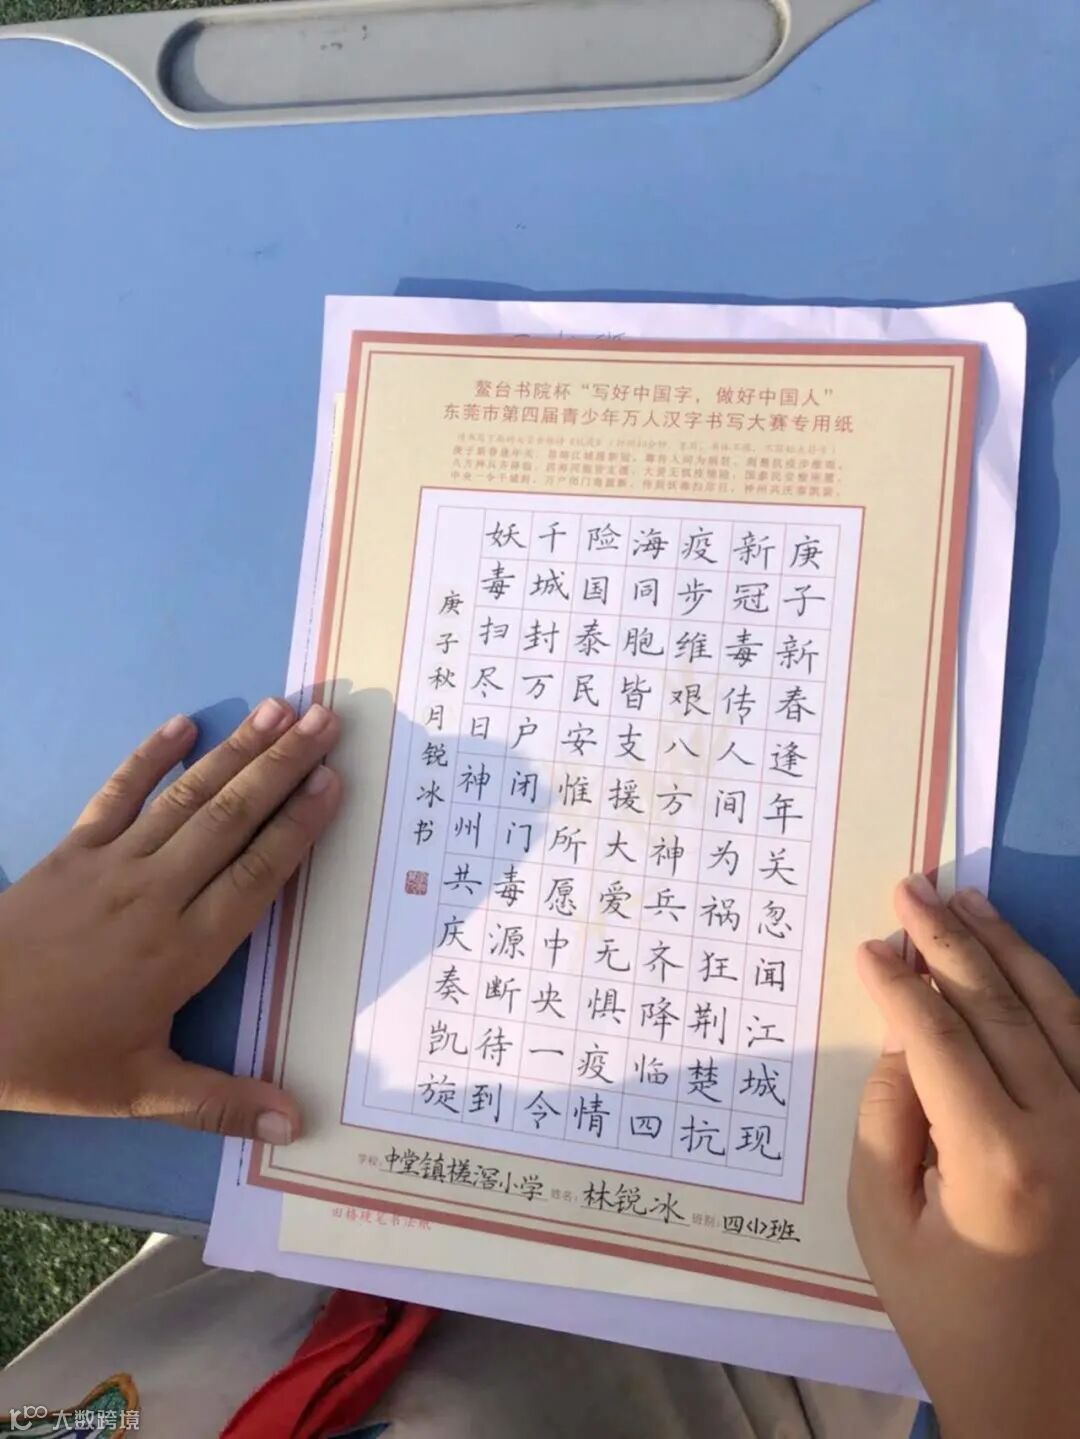 鳌台书院杯“写好中国字，做好中国人”
东莞市第四届青少年万人汉字书写大赛专用纸
庚子新春逢年关忽闻江城现
新冠毒传人间为祸狂荆楚抗
疫步维艰八方神兵齐降临四
海同胞皆支援大爱无惧疫情
险国泰民安惟所愿中央一令
千城封万户闭门毒源断待到
妖毒扫尽日神州共庆奏凯旋
庚子秋月锐冰书
学校：中堂镇槎滘小学 姓名：林锐冰 班别：四<1>班
田格硬笔书法纸
大数跨境